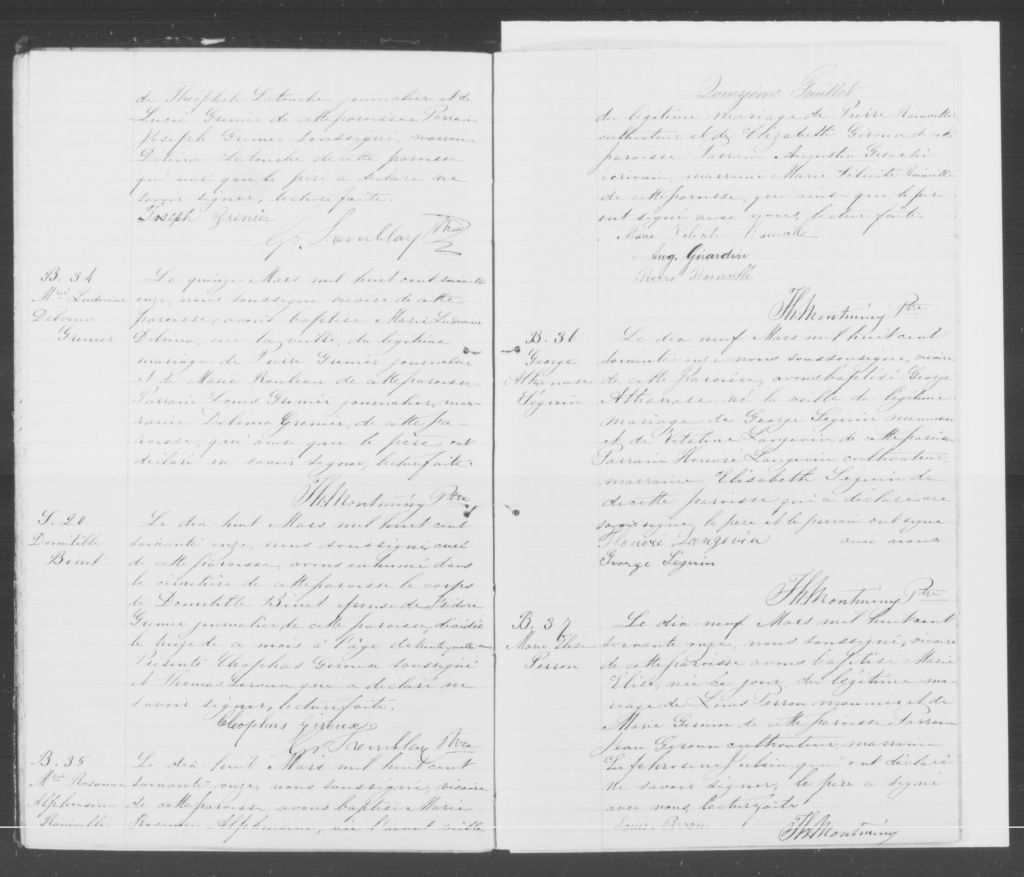 de Théophile Latouche journalier et de
Lucie Grenier de cette paroisse. Parrain
Joseph Grenier soussigné, marraine
Delvina Latouche de cette paroisse
qui ainsi que le père a déclaré ne
savoir signer, lecture faite.
Joseph Grenier
Gr. Tremblay Ptre
B. 34
Mrie Ludivine
Delvina
Grenier
Le quinze Mars mil huit cent soixante
onze, nous soussigné vicaire de cette
paroisse, avons baptisé Marie Ludivine
Delvina, née la veille, du légitime
mariage de Pierre Grenier journalier
et de Marie Rouleau de cette paroisse.
Parrain Louis Grenier journalier, mar-
raine Delima Grenier, de cette pa-
roisse, qui ainsi que le père ont
déclaré ne savoir signer, lecture faite.
Th. Montminy Ptre
S. 20
Domitille
Binet
Le dix huit Mars mil huit cent
soixante onze, nous soussigné, curé
de cette paroisse, avons inhumé dans
le cimetière de cette paroisse le corps
de Domitille Binet épouse de Isidore
Grenier journalier, de cette paroisse, décédée
le quinze de ce mois à l'âge de trente quatre ans
Présents Cléophas Giroux soussigné
et Thomas Giroux qui a déclaré ne
savoir signer, lecture faite.
Cleophas Giroux
Gr. Tremblay Ptre
B. 35
Mrie Rosanna
Alphonsine
Rainville
Le dix huit Mars mil huit cent
soixante onze, nous soussigné, vicaire
de cette paroisse, avons baptisé Marie
Rosanna Alphonsine, née l'avant veille
Quinzième Feuillet
du légitime mariage de Pierre Rainville
cultivateur et de Elizabeth Giroux de cette
paroisse Parrain Augustin Girardin
écrivain, marraine Marie Félicité Rainville
de cette paroisse, qui ainsi que le père
ont signé avec nous, lecture faite.
Marie Félicité Rainville
Aug. Girardin
Pierre Rainville
Th. Montminy Ptre
B. 36
George
Athanase
Séguin
Le dix neuf Mars mil huit cent
soixante onze nous soussigné, vicaire
de cette paroisse, avons baptisé George
Athanase, né la veille du légitime
mariage de George Séguin menuisier
et de Vitaline Langevin de cette paroisse
Parrain Honoré Langevin cultivateur,
marraine, Elisabeth Séguin de
de cette paroisse qui a déclaré ne
savoir signer, le père et le parrain ont signé
avec nous
Honoré Langevin
George Séguin
Th. Montminy Ptre
B. 37
Marie Elise
Perron
Le dix-neuf Mars mil huit cent
soixante onze, nous soussigné, vicaire
de cette paroisse avons baptisé Marie
Elise, née ce jour, du légitime ma-
riage de Louis Perron et de
Marie Giroux de cette paroisse Parrain
Jean Gyroux cultivateur, marraine
Euphrosine Julien, qui ont déclaré
ne savoir signer, le père a signé
avec nous, lecture faite
Louis Perron
Th. Montminy